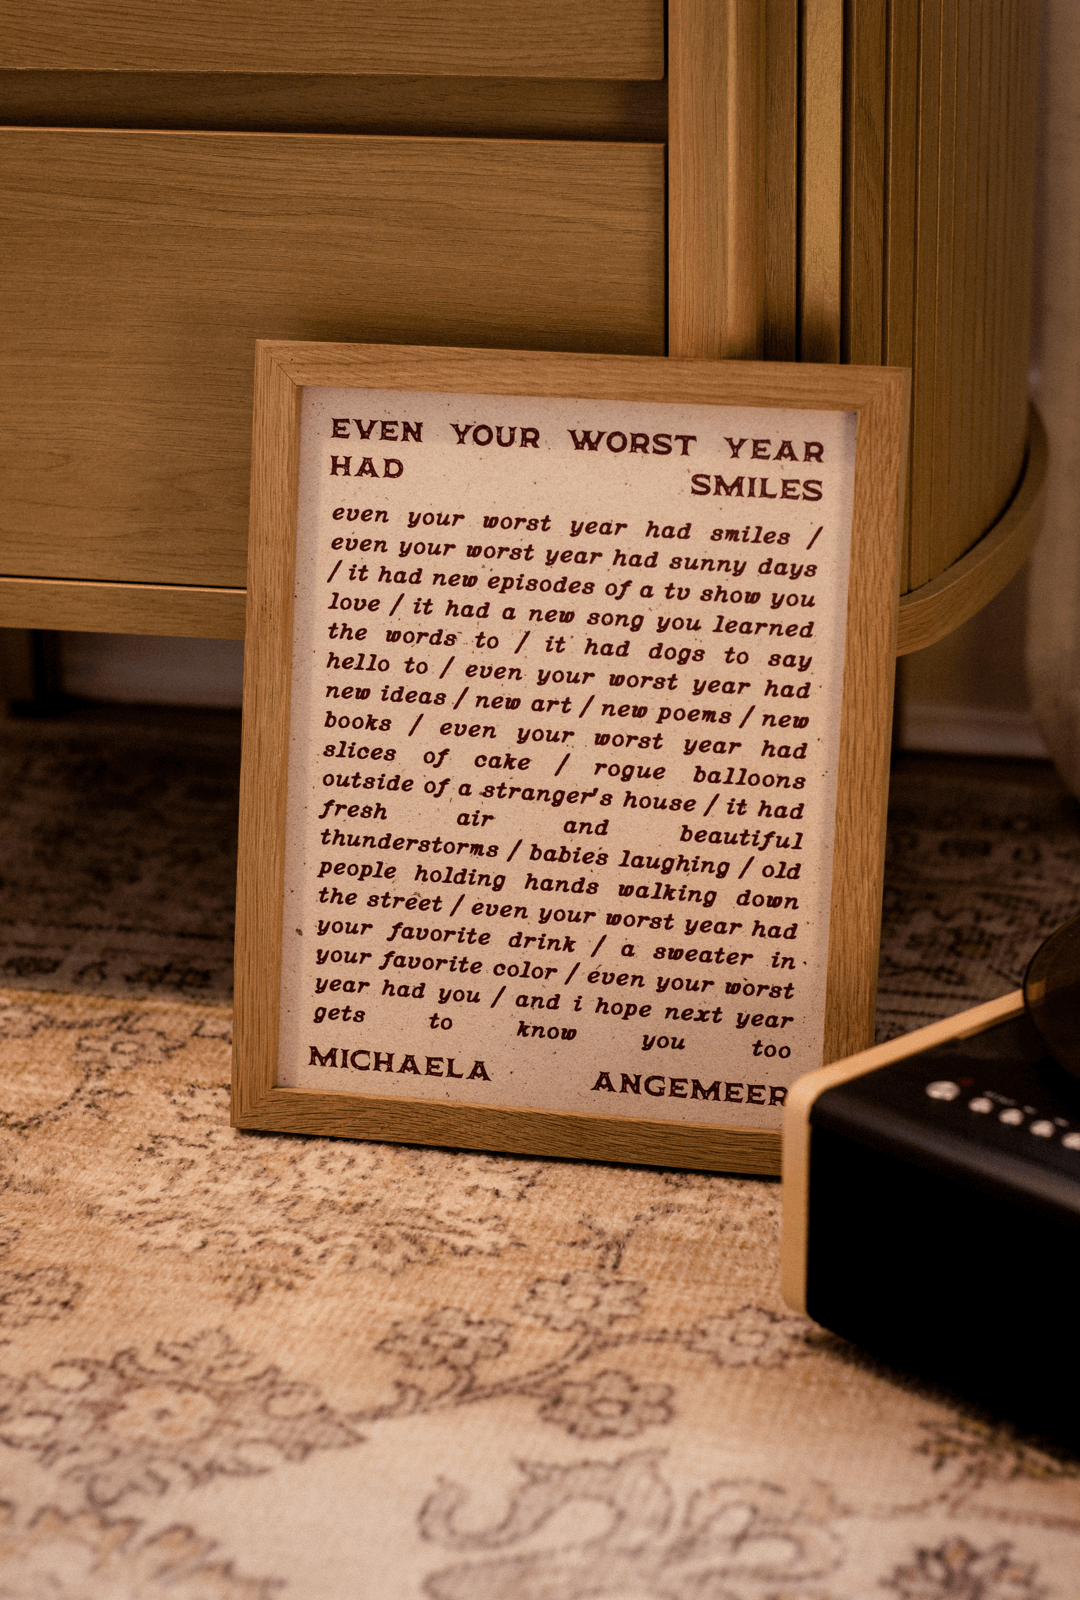 EVEN YOUR WORST YEAR
HAD SMILES
even your worst year had smiles /
even your worst year had sunny days
/ it had new episodes of a tv show you
love / it had a new song you learned
the words to / it had dogs to say
hello to / even your worst year had
new ideas / new art / new poems / new
books / even your worst year had
slices of cake / rogue balloons
outside of a stranger's house / it had
fresh air and beautiful
thunderstorms / babies laughing / old
people holding hands walking down
the street / even your worst year had
your favorite drink / a sweater in
your favorite color / even your worst
year had you / and i hope next year
gets to know you too
MICHAELA ANGEMEER